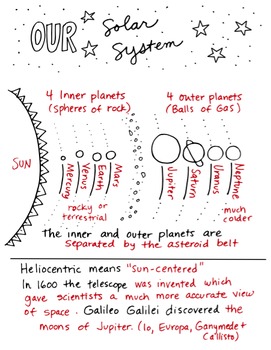 OUR Solar System
4 Inner planets
(spheres of rock)
4 outer planets
(Balls of Gas)
SUN
Mercury
Venus
Earth
Mars
Jupiter
Saturn
Uranus
Neptune
rocky or
terrestrial
much
colder
The inner and outer planets are
separated by the asteroid belt
Heliocentric means "sun-centered"
In 1600 the telescope was invented which
gave scientists a much more accurate view
of space. Galileo Galilei discovered the
moons of Jupiter. (Io, Europa, Ganymede +
Callisto)